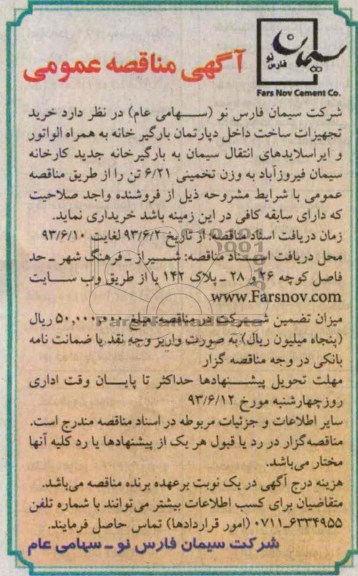 سیمان
فارس نو
Fars Nov Cement Co.
آگهی مناقصه عمومی
شرکت سیمان فارس نو (سهامی عام) در نظر دارد خرید
تجهیزات ساخت داخل دپارتمان بارگیر خانه به همراه الواتور
و ایراسلایدهای انتقال سیمان به بارگیرخانه جدید کارخانه
سیمان فیروزآباد به وزن تخمینی ۶/۲۱ تن را از طریق مناقصه
عمومی با شرایط مشروحه ذیل از فروشنده واجد صلاحیت
که دارای سابقه کافی در این زمینه باشد خریداری نماید.
زمان دریافت اسناد مناقصه: از تاریخ ۹۳/۶/۲ لغایت ۹۳/۶/۱۰
محل دریافت اسناد مناقصه: شیراز ـ فرهنگ شهر ـ حد
فاصل کوچه ۲۶ و ۲۸ ـ پلاک ۱۴۲ یا از طریق وب سایت
www.Farsnov.com
میزان تضمین شرکت در مناقصه: مبلغ ۵۰,۰۰۰,۰۰۰ ریال
(پنجاه میلیون ریال) به صورت واریز وجه نقد یا ضمانت نامه
بانکی در وجه مناقصه گزار
مهلت تحویل پیشنهادها حداکثر تا پایان وقت اداری
روز چهارشنبه مورخ ۹۳/۶/۱۲
سایر اطلاعات و جزئیات مربوطه در اسناد مناقصه مندرج است.
مناقصه‌گزار در رد یا قبول هر یک از پیشنهادها یا رد کلیه آنها
مختار می‌باشد.
هزینه درج آگهی در یک نوبت برعهده برنده مناقصه می‌باشد.
متقاضیان برای کسب اطلاعات بیشتر می‌توانند با شماره تلفن
۶۳۳۴۹۵۵-۰۷۱۱ (امور قراردادها) تماس حاصل فرمایند.
شرکت سیمان فارس نو ـ سهامی عام